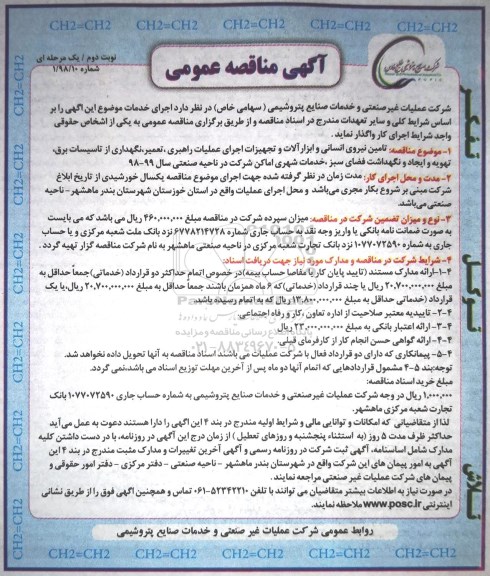 CH2=CH2 CH2=CH2 CH2=CH2 CH2=CH2 CH2=CH2
نوبت دوم / یک مرحله ای
شماره ۱/۹۸/۱۰
آگهی مناقصه عمومی
شرکت عملیات غیرصنعتی و خدمات صنایع پتروشیمی ( سهامی خاص) در نظر دارد اجرای خدمات موضوع این آگهی را بر
اساس شرایط کلی و سایر تعهدات مندرج در اسناد مناقصه و از طریق برگزاری مناقصه عمومی به یکی از اشخاص حقوقی
واجد شرایط اجرای کار واگذار نماید .
۱- موضوع مناقصه: تامین نیروی انسانی و ابزار آلات و تجهیزات اجرای عملیات راهبری ، تعمیر، نگهداری از تاسیسات برق،
تهویه و ایجاد و نگهداشت فضای سبز ،خدمات شهری اماکن شرکت در ناحیه صنعتی سال ۹۹-۹۸
۲- مدت و محل اجرای کار: مدت زمان در نظر گرفته شده جهت اجرای موضوع مناقصه یکسال خورشیدی از تاریخ ابلاغ
شرکت مبنی بر شروع بکار مجری می‌باشد و محل اجرای عملیات واقع در استان خوزستان شهرستان بندر ماهشهر - ناحیه
صنعتی می‌باشد.
۳- نوع و میزان تضمین شرکت در مناقصه: میزان سپرده شرکت در مناقصه مبلغ ۴۶۰,۰۰۰,۰۰۰ ریال می باشد که می بایست
به صورت ضمانت نامه بانکی یا واریز وجه نقد به حساب جاری شماره ۶۷۷۸۲۱۴۷۲۸ نزد بانک ملت شعبه مرکزی و یا حساب
جاری به شماره ۱۰۷۷۰۷۲۵۹۰ نزد بانک تجارت شعبه مرکزی در ناحیه صنعتی ماهشهر به نام شرکت مناقصه گزار تهیه گردد .
۴- شرایط شرکت در مناقصه و مدارک مورد نیاز جهت دریافت اسناد:
۴-۱-ارائه مدارک مستند (تایید پایان کار یا مفاصا حساب بیمه)در خصوص اتمام حداکثر دو قرارداد (خدماتی)جمعاً حداقل به
مبلغ ۲۰,۷۰۰,۰۰۰,۰۰۰ ریال یا چند قرارداد (خدماتی)که ۶ ماه همزمان باشند جمعاً حداقل به مبلغ ۲۰,۷۰۰,۰۰۰,۰۰۰ ریال،یا یک
قرارداد (خدماتی حداقل به مبلغ ۱۳,۸۰۰,۰۰۰,۰۰۰ ریال که به اتمام رسیده باشد.
۴-۲- تاییدیه معتبر صلاحیت از اداره تعاون ،کار و رفاه اجتماعی.
۴-۳- ارائه اعتبار بانکی به مبلغ ۲۳,۰۰۰,۰۰۰,۰۰۰ ریال.
۴-۴- ارائه گواهی حسن انجام کار از کارفرمای قبلی
۴-۵- پیمانکاری که دارای دو قرارداد فعال با شرکت عملیات می باشند اسناد مناقصه به آنها تحویل داده نخواهد شد.
توجه:بند ۵-۴ مشمول قراردادهایی که اتمام آنها دو ماه پس از آخرین مهلت توزیع اسناد می باشد،نمی گردد.
مبلغ خرید اسناد مناقصه:
۱,۰۰۰,۰۰۰ ریال در وجه شرکت عملیات غیرصنعتی و خدمات صنایع پتروشیمی به شماره حساب جاری ۱۰۷۷۰۷۲۵۹۰ بانک
تجارت شعبه مرکزی ماهشهر.
لذا از متقاضیانی که امکانات و توانایی مالی و شرایط اولیه مندرج در بند ۴ این آگهی را دارا هستند دعوت به عمل می‌آید
حداکثر ظرف مدت ۵ روز (به استثناء پنجشنبه و روزهای تعطیل ) از زمان درج این آگهی در روزنامه، با در دست داشتن کلیه
مدارک شامل اساسنامه، آگهی ثبت شرکت در روزنامه رسمی و آگهی آخرین تغییرات و مدارک مثبت مندرج در بند ۴ این
آگهی به امور پیمان های این شرکت واقع در شهرستان بندر ماهشهر - ناحیه صنعتی - دفتر مرکزی - دفتر امور حقوقی و
پیمان های شرکت عملیات غیر صنعتی مراجعه نمایند .
در صورت نیاز به اطلاعات بیشتر متقاضیان می توانند با تلفن ۰۶۱-۵۲۳۴۲۲۱۰ تماس و همچنین آگهی فوق را از طریق نشانی
اینترنتی www.posc.ir ملاحظه نمایند.
روابط عمومی شرکت عملیات غیر صنعتی و خدمات صنایع پتروشیمی
تفکر
توکل
تلاش
۰۲۱-۸۸۳۴۹۶۷۰-۵
CH2=CH2 CH2=CH2 CH2=CH2 CH2=CH2 CH2=CH2